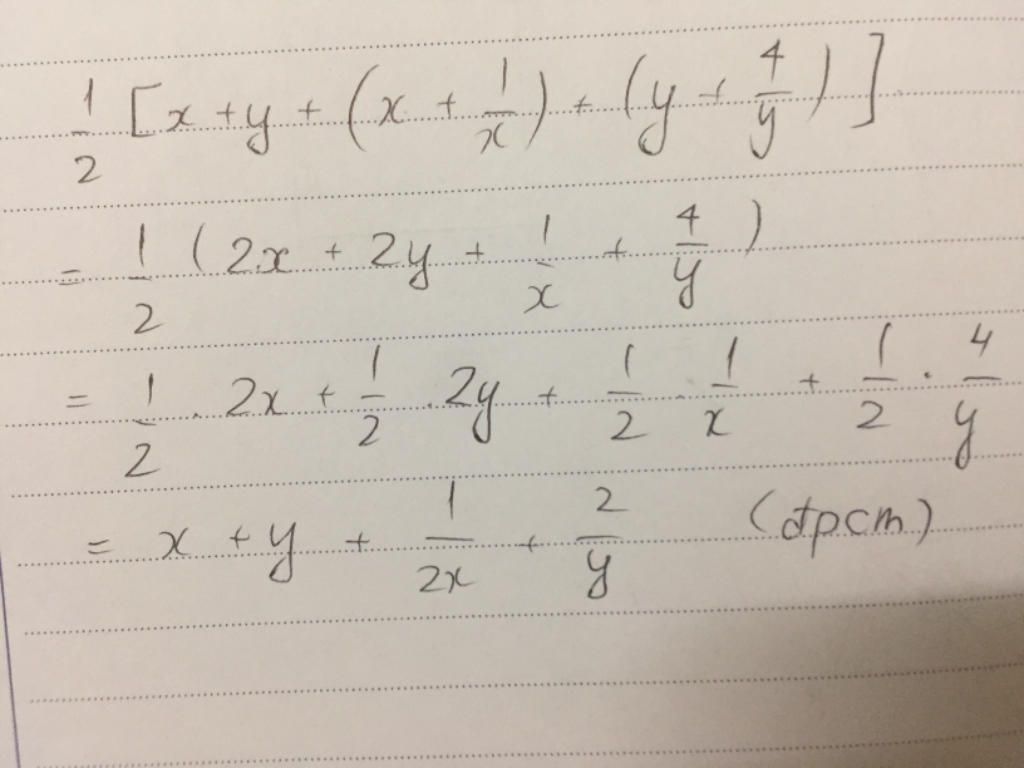 1/2 [x + y + (x + 1/x) + (y + 4/y)]
= 1/2 (2x + 2y + 1/x + 4/y)
= 1/2 . 2x + 1/2 . 2y + 1/2 . 1/x + 1/2 . 4/y
= x + y + 1/2x + 2/y (đpcm)